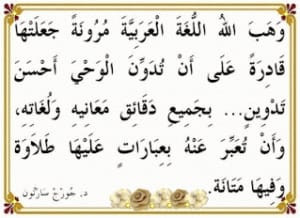 وَهَبَ اللهُ اللُّغَةَ الْعَرَبِيَّةَ مُرُونَةً جَعَلَتْهَا
قَادِرَةً عَلَى أَنْ تُدَوِّنَ الْوَحْيَ أَحْسَنَ
تَدْوِينٍ... بِجَمِيعِ دَقَائِقِ مَعَانِيهِ وَلُغَاتِهِ،
وَأَنْ تُعَبِّرَ عَنْهُ بِعِبَارَاتٍ عَلَيْهَا طَلَاوَة
وَفِيهَا مَتَانَة.
د. جُورْجْ سَارْتُون